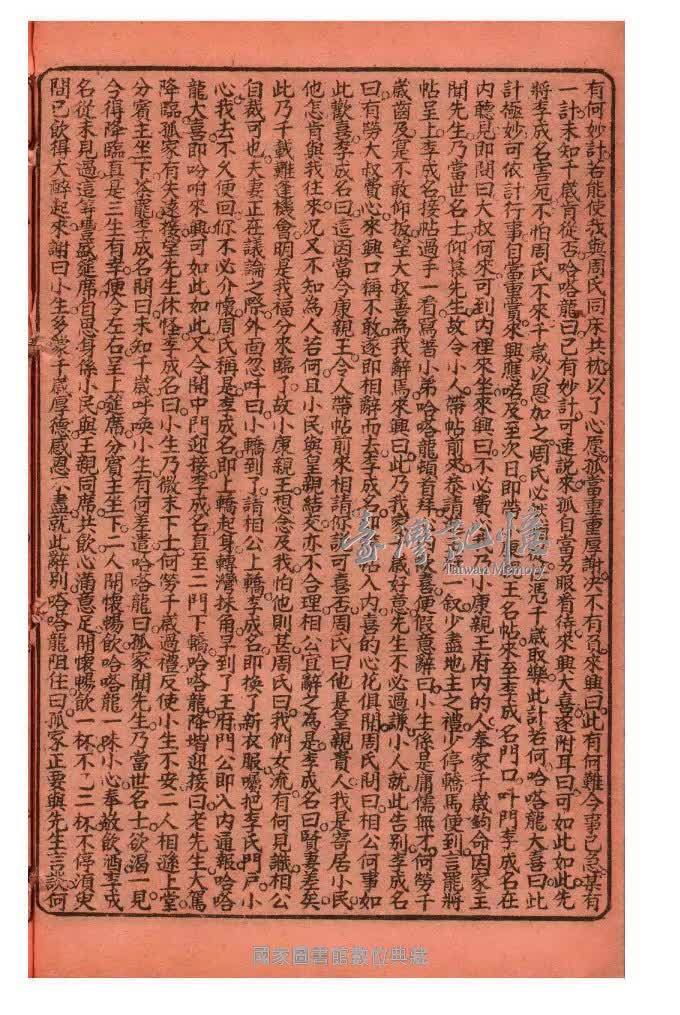 有何妙計若能使我與周氏同床共枕以了心愿孤當重重厚謝决不有負來興曰此有何難今事已急某有
一計未知千歲肯從否哈嗒龍曰已有妙計可速說來孤自當另眼看待來興大喜遂附耳曰可如此如此先
將李成名害死不怕周氏不來千歲以恩加之周氏必然 憑千歲取樂此計若何哈嗒龍大喜曰此
計極妙可依計行事自當重賞來興應若及至次日即帶 王名帖來至李成名門口叫門李成名在
內聽見即問曰大叔何來可到內裡來坐來興曰不必費 小康親王府內的人奉家千歲鈞命因家王
聞先生乃當世名士仰慕先生故令小人帶帖前來恭請 叙少盡地主之禮少停轎馬便到言罷將
帖呈上李成名接帖過手一看寫著小弟哈嗒龍頓首拜 大喜便假意辭曰小生係是庸儒無 何勞千
歲齒及寔不敢仰扳望大叔善為我辭焉來興曰此乃我家 歲好意先生不必過謙小人就此告别李成名
曰有勞大叔費心來興口稱不敢遂即相辭而去李成名即 帖入內喜的心花俱開周氏問曰相公何事如
此歡喜李成名曰這因當今康親王令人帶帖前來相請你說可喜否周氏曰他是皇親貴人我是寄居小民
他怎肯與我往來况又不知為人若何且小民與皇親結交亦不合理相公宜辭之為是李成名曰賢妻差矣
此乃千載難逢機會明是我福分來臨了故小康親王想念及我怕他則甚周氏曰我們女流有何見識相公
自裁可也夫妻正在議論之際外面忽叫曰小轎到了請相公上轎李成名即換了新衣服囑把李氏門戶小
心我去不久便回你不必介懷周氏稱是李成名即上轎起身轉灣抹角早到了王府門公即入內通報哈嗒
龍大喜即吩咐來興可如此如此又令開中門迎接李成名直至二門下轎哈嗒龍降堦迎接曰老先生大駕
降臨孤家有失遠接望先生休怪李成名曰小生乃微末下士何勞千歲過禮反使小生不安二人相遜上堂
分賓主坐下茶罷李成名問曰未知千歲呼喚小生有何差遣哈嗒龍曰孤家聞先生乃當世名士欲渴一見
今得降臨真是三生有幸便令左右呈上筵席分賓主坐下二人開懷暢飲哈嗒龍一味小心奉敬飲酒李成
名從未見過這等豐盛筵席自思身係小民與王親同席共飲心滿意足開懷暢飲一杯不 二三杯不停須臾
間已飲得大醉起來謝曰小生多蒙千歲厚德感恩不盡就此辭别哈嗒龍阻住曰孤家正要與先生言談何
臺灣記憶
Taiwan Memory
國家圖書館數位典藏